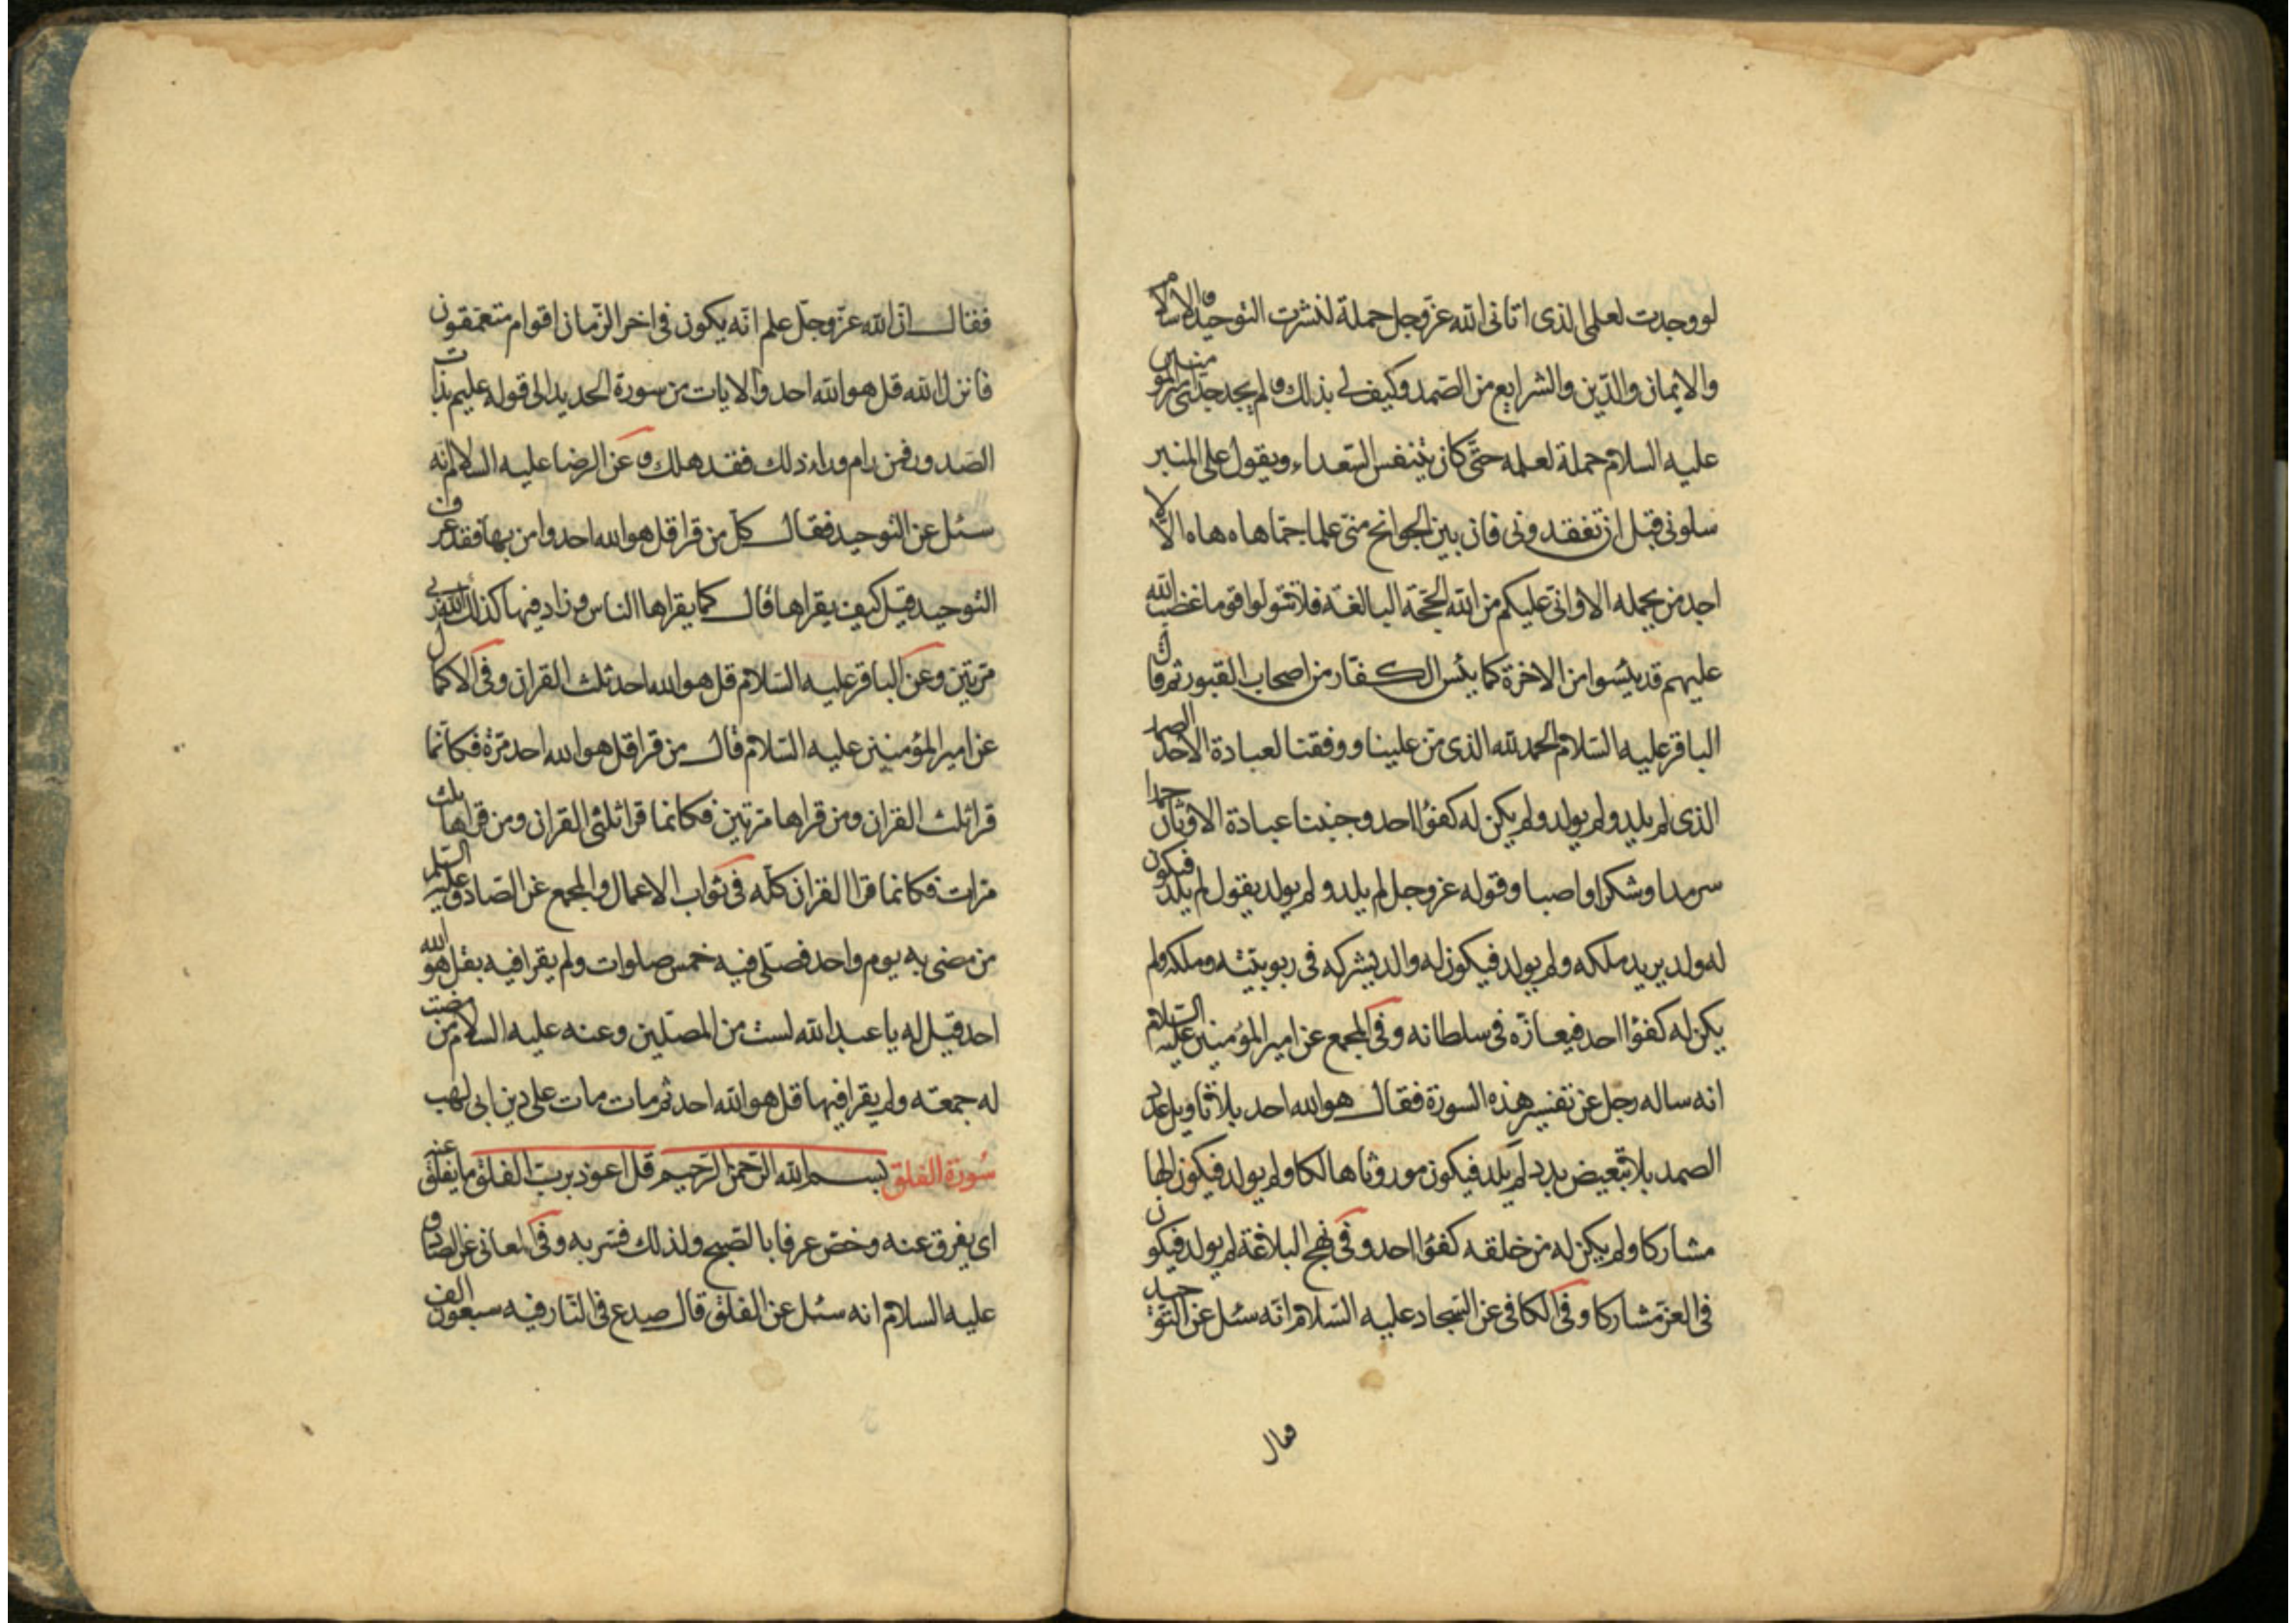 لو وجدت لعلمی الذی اتانی الله عزّ وجل حملة لنشرت التوحید والاسلام
والایمان والدّین والشرایع من الصّمد وکیف لی بذلک و لم یجد جدّی امیر المؤمنین
علیه السلام حملة لعلمه حتّی کان یتنفس الصّعداء ویقول علی المنبر
سلونی قبل ان تفقدونی فان بین الجوانح منّی علما جمّا هاه هاه الا لا
اجد من یحمله الا وانّی علیکم من الله الحجّة البالغة فلا تتولوا قوما غضب الله
علیهم قد یئسوا من الاخرة کما یئس الکفّار من اصحاب القبور ثم قال
الباقر علیه السّلام الحمد لله الذی منّ علینا ووفقنا لعبادة الاحد الصمد
الذی لم یلد ولم یولد ولم یکن له کفوًا احد وجنبنا عبادة الاوثان حمدا
سرمدا وشکرا واصبا وقوله عز وجل لم یلد ولم یولد یقول لم یلد فیکون
له ولد یرید ملکه ولم یولد فیکون له والد یشرکه فی ربوبیّته وملکه ولم
یکن له کفوًا احد فیعازّه فی سلطانه وفی المجمع عن امیر المؤمنین علیه السّلام
انه ساله رجل عن تفسیر هذه السورة فقال هو الله احد بلا تاویل عدد
الصمد بلا تبعیض بدد لم یلد فیکون موروثا هالکا ولم یولد فیکون الها
مشارکا ولم یکن له من خلقه کفوًا احد وفی نهج البلاغة لم یولد فیکون
فی العزّ مشارکا وفی الکافی عن السّجاد علیه السّلام انّه سئل عن التّوحید
فقال
فقال انّ الله عزّ وجلّ علم انّه یکون فی اخر الزّمان اقوام متعمّقون
فانزل الله قل هو الله احد والایات من سورة الحدید الی قوله علیم بذات
الصّدور فمن رام وراء ذلک فقد هلک و عن الرضا علیه السلام انّه
سئل عن التوحید فقال کلّ من قرا قل هو الله احد وامن بها فقد عرف
التوحید قیل کیف یقراها قال کما یقراها الناس وزاد فیها کذلک الله ربی
مرّتین وعن الباقر علیه السّلام قل هو الله احد ثلث القران وفی الاکمال
عن امیر المؤمنین علیه السّلام قال من قرا قل هو الله احد مرّة فکانّما
قرا ثلث القران ومن قراها مرّتین فکانما قرا ثلثی القران ومن قراها ثلث
مرّات فکانما قرا القران کلّه فی ثواب الاعمال والمجمع عن الصّادق علیه السّلم
من مضی به یوم واحد فصلّی فیه خمس صلوات ولم یقرا فیه بقل هو الله
احد قیل له یا عبد الله لست من المصلّین وعنه علیه السلام من مضت
له جمعة ولم یقرا فیها قل هو الله احد ثم مات مات علی دین ابی لهب
سُورة الفلق بسم الله الرّحمن الرّحیم قل اعوذ بربّ الفلق ما یفلق عنه
ای یفرق عنه وخصّ عرفا بالصّبح ولذلک فسّر به وفی المعانی عن الصّادق
علیه السلام انه سئل عن الفلق قال صدع فی النّار فیه سبعون الف